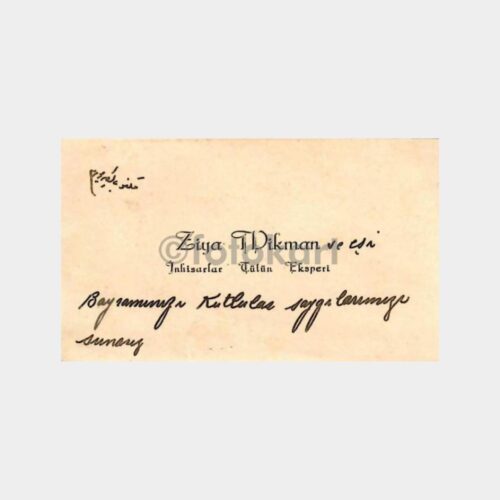 Ziya Wikman ve eşi
©fotokart
İnhisarlar Tütün Eksperi
Bayramınızı Kutlular saygılarımızı
sunarız